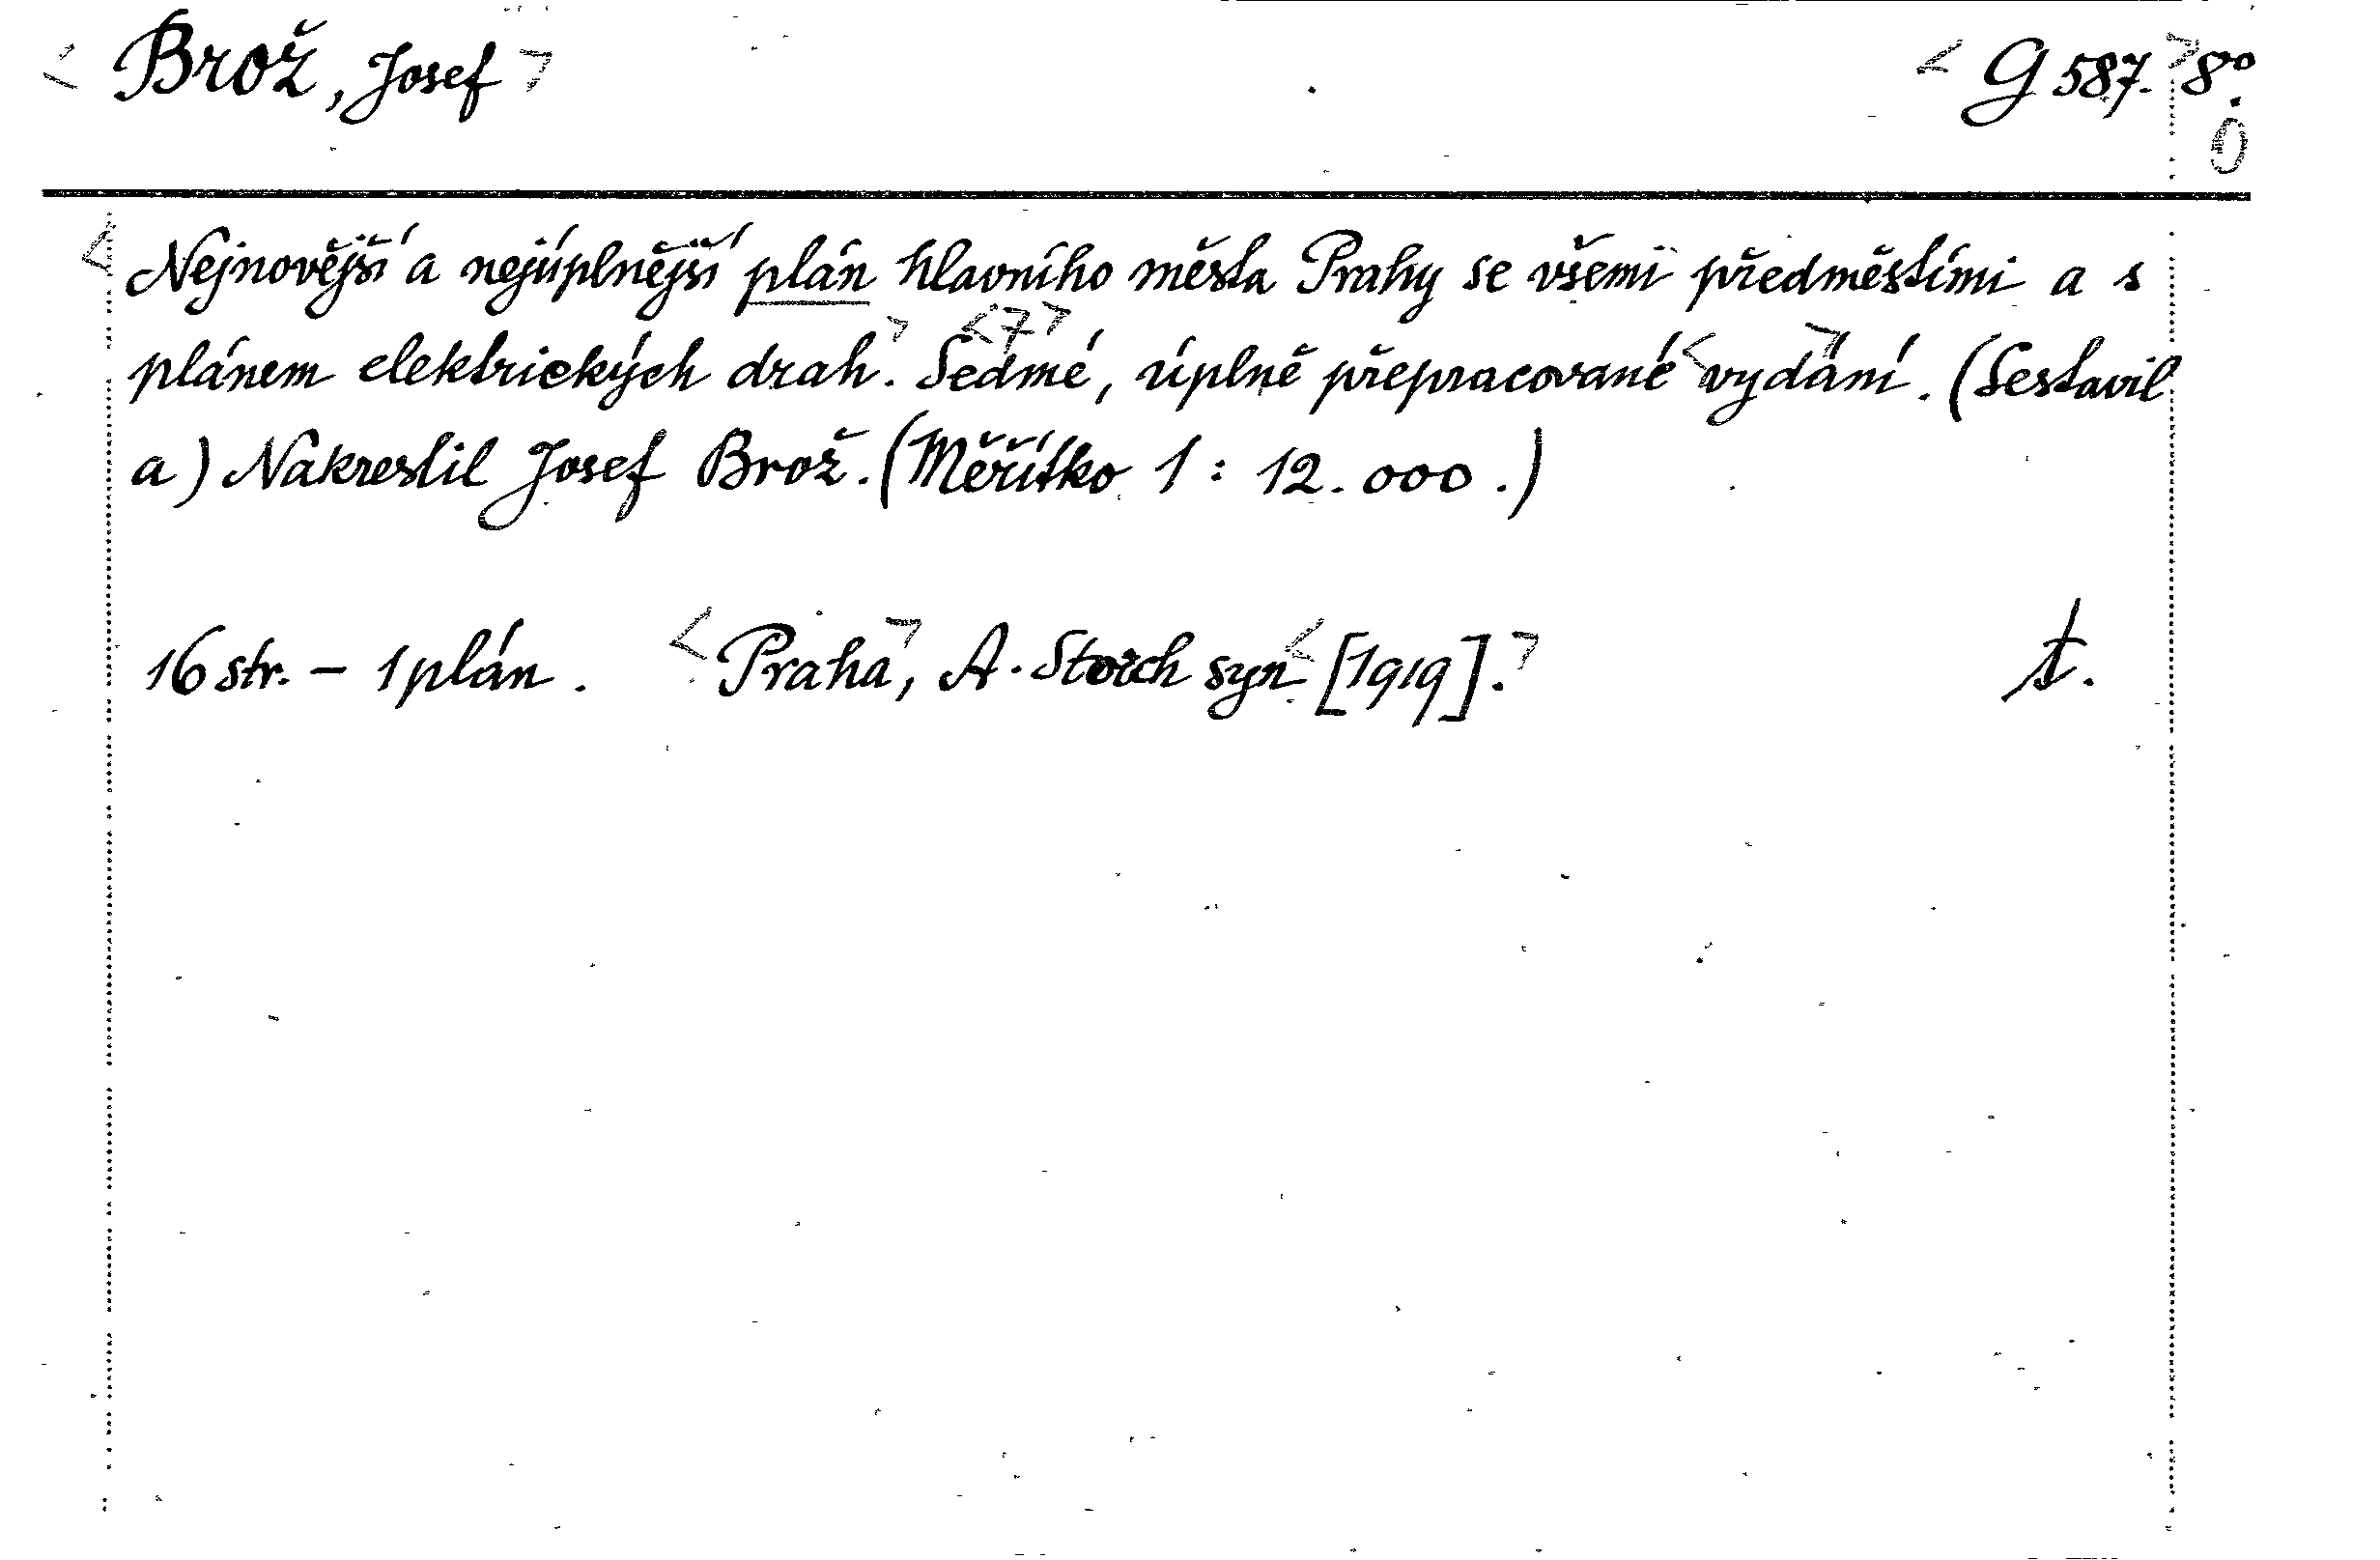 < Brož, Josef > < G 587. > 8°.
0
< Nejnovější a nejúplnější plán hlavního města Prahy se všemi předměstími a s
<7>
plánem elektrických drah. > Sedmé, úplně přepracované < vydání. > (Sestavil
a) Nakreslil Josef Brož. (Měřítko 1 : 12.000.)
16 str. – 1 plán. < Praha >, A. Storch syn < [1919]. > t.